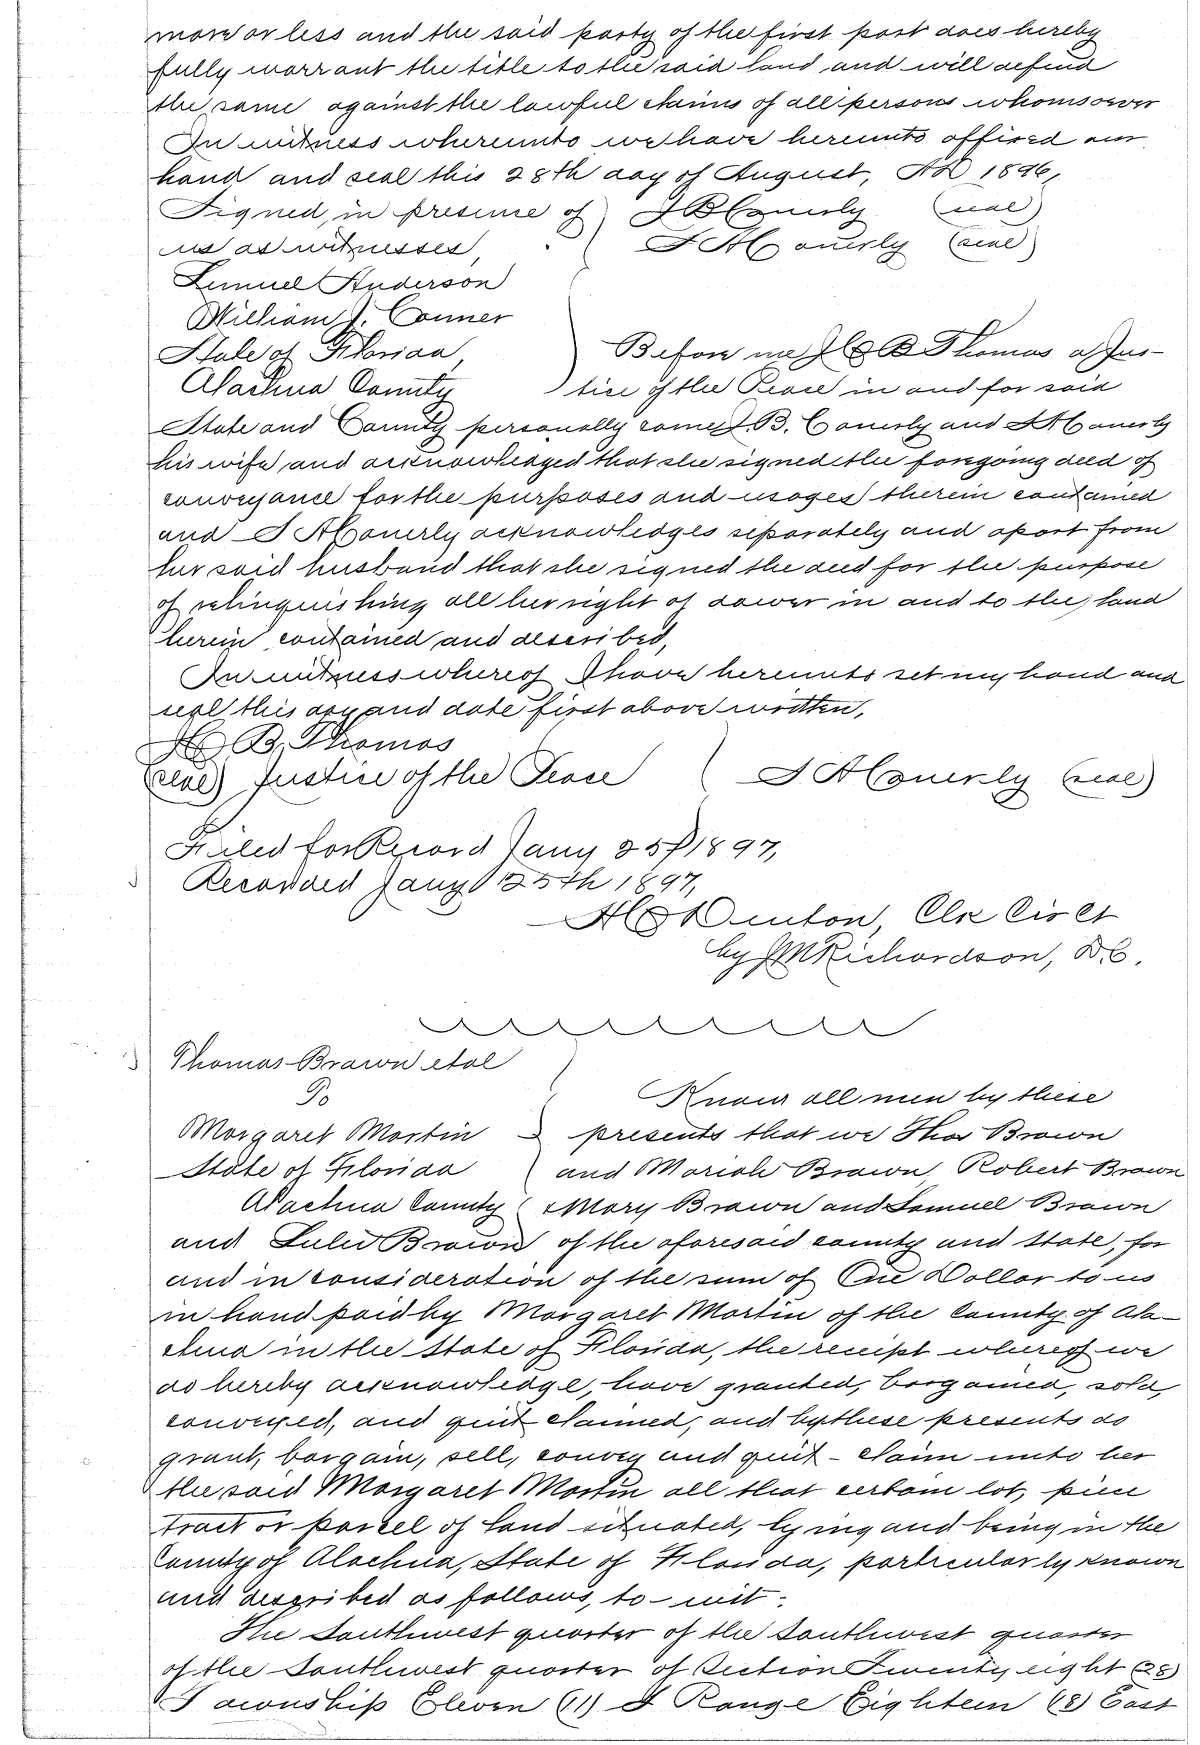 more or less and the said party of the first part does hereby
fully warrant the title to the said land and will defend
the same against the lawful claims of all persons whomsoever
In witness whereunto we have hereunto affixed our
hand and seal this 28th day of August, AD 1896,
Signed, in presence of J B Conerly (seal)
us as witnesses, S A Conerly (seal)
Lemuel Anderson
William J. Conner
State of Florida, Before me H B Thomas a Jus-
Alachua County tice of the Peace in and for said
State and County personally came J B. Conerly and S A Conerly
his wife and acknowledged that she signed the foregoing deed of
conveyance for the purposes and usages therein contained
and S A Conerly acknowledges separately and apart from
her said husband that she signed the deed for the purpose
of relinquishing all her right of dower in and to the land
herein contained and described,
In witness whereof I have hereunto set my hand and
seal this day and date first above written,
H B. Thomas
(seal) Justice of the Peace S A Conerly (seal)
Filed for Record Jany 25th 1897,
Recorded Jany 25th 1897,
H C Denton, Clk Circt Ct
by J M Richardson, D.C.
Thomas Brawn etal
To Know all men by these
Margaret Martin presents that we Thos Brawn
State of Florida and Mariah Brawn, Robert Brawn
Alachua County & Mary Brawn and Samuel Brawn
and Lulu Brawn of the aforesaid county and state, for
and in consideration of the sum of One Dollar to us
in hand paid by Margaret Martin of the County of Ala-
chua in the State of Florida, the receipt whereof we
do hereby acknowledge, have granted, bargained, sold,
conveyed, and quit claimed, and by these presents do
grant, bargain, sell, convey and quit-claim unto her
the said Margaret Martin all that certain lot, piece
tract or parcel of land situated, lying and being in the
County of Alachua, State of Florida, particularly known
and described as follows, to-wit:
The Southwest quarter of the Southwest quarter
of the Southwest quarter of Section Twenty eight (28)
Township Eleven (11) S Range Eighteen (18) East